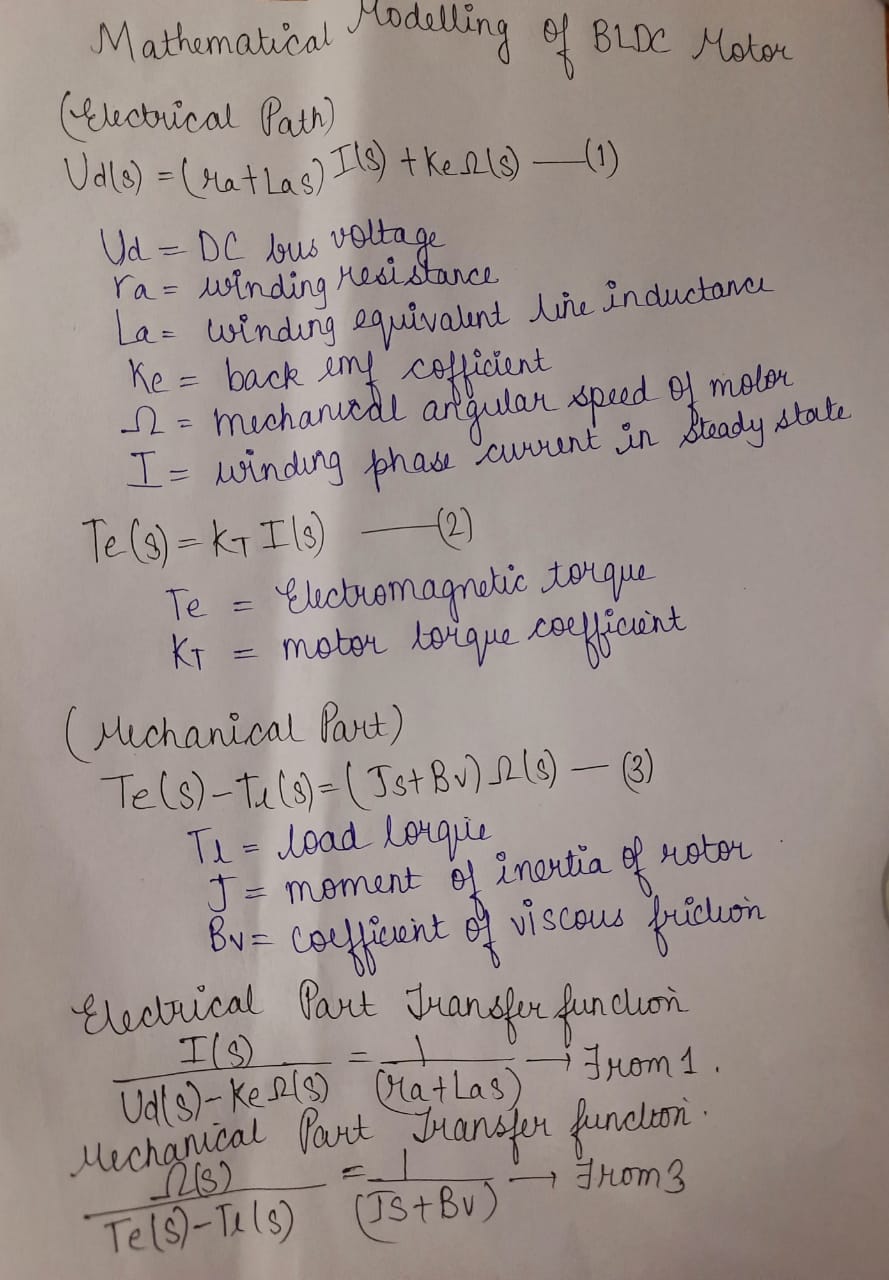 Mathematical Modelling of BLDC Motor
(Electrical Path)
Ud(s) = (ra+Las) I(s) + KeΩ(s) —(1)
Ud = DC bus voltage
ra = winding resistance
La = winding equivalent line inductance
Ke = back emf cofficient
Ω = mechanical angular speed of motor
I = winding phase current in steady state
Te(s) = KT I(s) —(2)
Te = Electromagnetic torque
KT = motor torque coefficient
(Mechanical Part)
Te(s)-Tl(s)=(Js+Bv)Ω(s) — (3)
Tl = load torque
J = moment of inertia of rotor
Bv = coefficient of viscous friction
Electrical Part Transfer function
I(s) / Ud(s)-KeΩ(s) = 1 / (ra+Las) → From 1.
Mechanical Part Transfer function.
Ω(s) / Te(s)-Tl(s) = 1 / (Js+Bv) → From 3